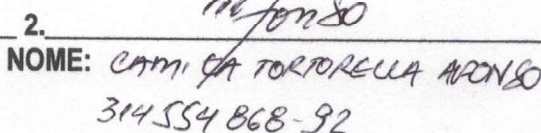 2. Afonso
NOME: CAMILA TORTORELLA AFONSO
314554868-92